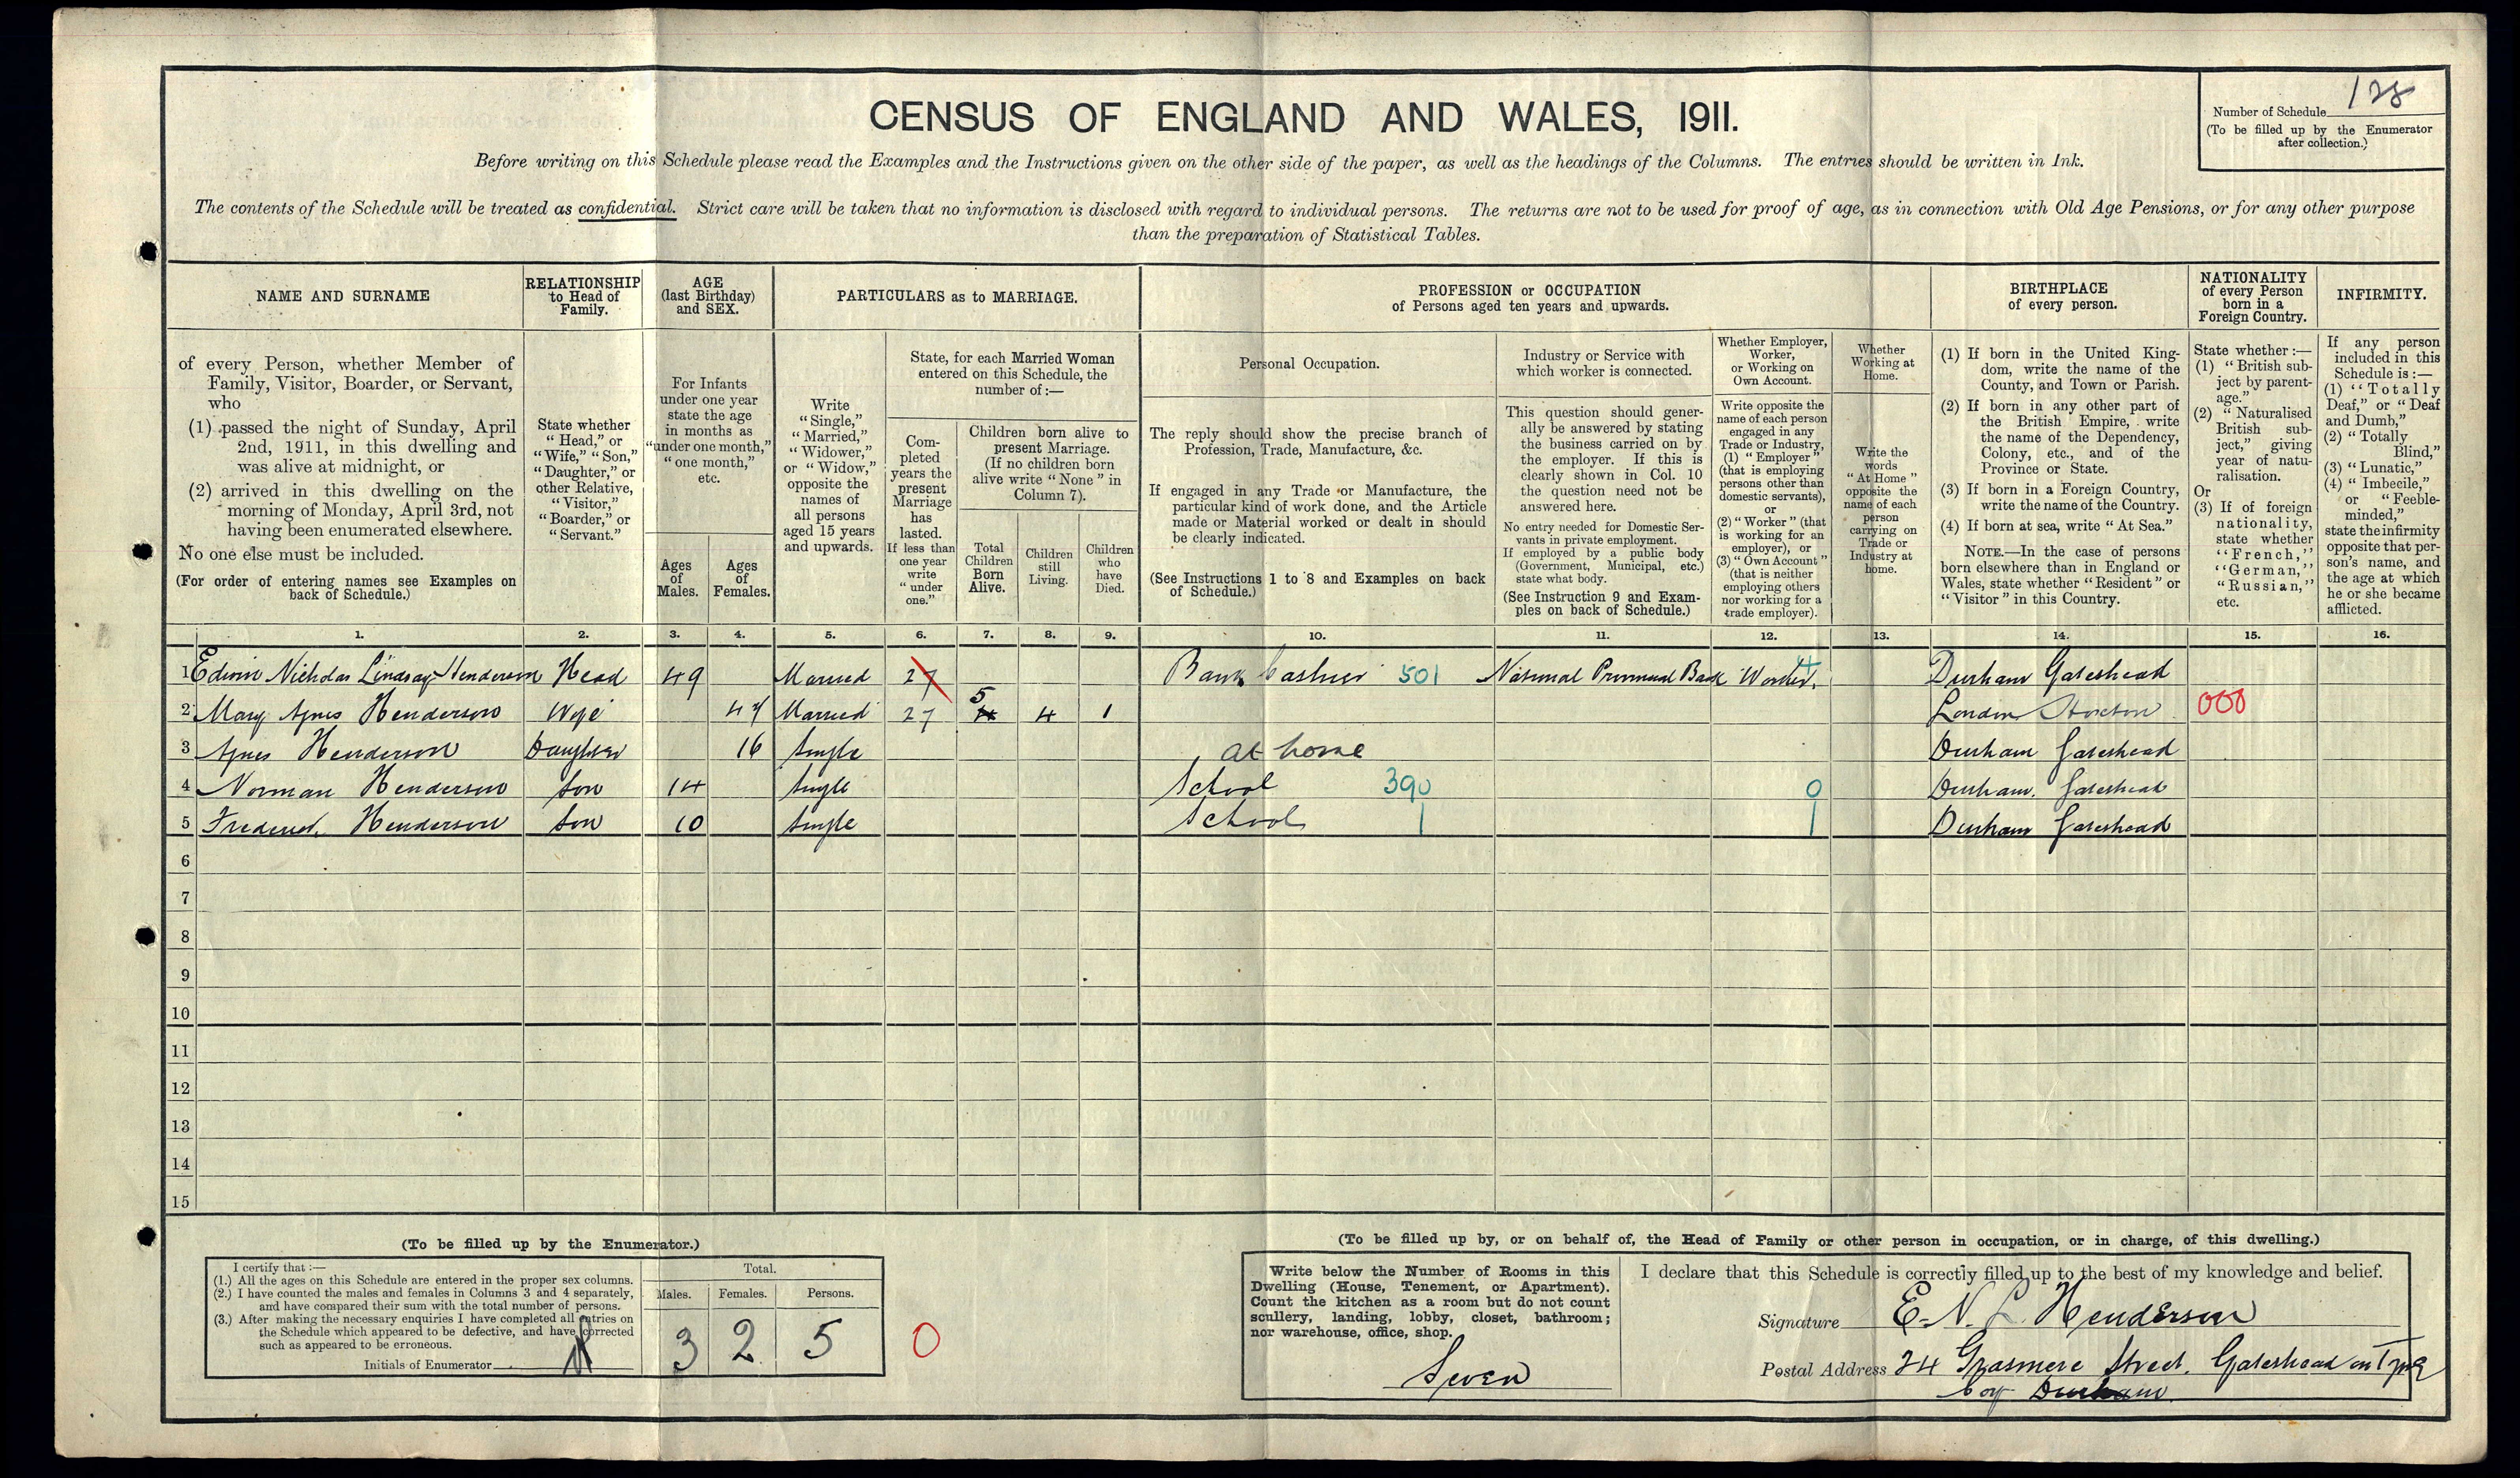 CENSUS OF ENGLAND AND WALES, 1911.
Number of Schedule 128
(To be filled up by the Enumerator
after collection.)
Before writing on this Schedule please read the Examples and the Instructions given on the other side of the paper, as well as the headings of the Columns. The entries should be written in Ink.
The contents of the Schedule will be treated as confidential. Strict care will be taken that no information is disclosed with regard to individual persons. The returns are not to be used for proof of age, as in connection with Old Age Pensions, or for any other purpose
than the preparation of Statistical Tables.
NAME AND SURNAME
of every Person, whether Member of
Family, Visitor, Boarder, or Servant,
who
(1) passed the night of Sunday, April
2nd, 1911, in this dwelling and
was alive at midnight, or
(2) arrived in this dwelling on the
morning of Monday, April 3rd, not
having been enumerated elsewhere.
No one else must be included.
(For order of entering names see Examples on
back of Schedule.)
RELATIONSHIP
to Head of
Family.
State whether
"Head," or
"Wife," "Son,"
"Daughter," or
other Relative,
"Visitor,"
"Boarder," or
"Servant."
AGE
(last Birthday)
and SEX.
For Infants
under one year
state the age
in months as
"under one month,"
"one month,"
etc.
Ages
of
Males.
Ages
of
Females.
PARTICULARS as to MARRIAGE.
Write
"Single,"
"Married,"
"Widower,"
or "Widow,"
opposite the
names of
all persons
aged 15 years
and upwards.
State, for each Married Woman
entered on this Schedule, the
number of:—
Com-
pleted
years the
present
Marriage
has
lasted.
If less than
one year
write
"under
one."
Children born alive to
present Marriage.
(If no children born
alive write "None" in
Column 7).
Total
Children
Born
Alive.
Children
still
Living.
Children
who
have
Died.
PROFESSION or OCCUPATION
of Persons aged ten years and upwards.
Personal Occupation.
The reply should show the precise branch of
Profession, Trade, Manufacture, &c.
If engaged in any Trade or Manufacture, the
particular kind of work done, and the Article
made or Material worked or dealt in should
be clearly indicated.
(See Instructions 1 to 8 and Examples on back
of Schedule.)
Industry or Service with
which worker is connected.
This question should gener-
ally be answered by stating
the business carried on by
the employer. If this is
clearly shown in Col. 10
the question need not be
answered here.
No entry needed for Domestic Ser-
vants in private employment.
If employed by a public body
(Government, Municipal, etc.)
state what body.
(See Instruction 9 and Exam-
ples on back of Schedule.)
Whether Employer,
Worker,
or Working on
Own Account.
Write opposite the
name of each person
engaged in any
Trade or Industry,
(1) "Employer"
(that is employing
persons other than
domestic servants),
or
(2) "Worker" (that
is working for an
employer), or
(3) "Own Account"
(that is neither
employing others
nor working for a
trade employer).
Whether
Working at
Home.
Write the
words
"At Home"
opposite the
name of each
person
carrying on
Trade or
Industry at
home.
BIRTHPLACE
of every person.
(1) If born in the United King-
dom, write the name of the
County, and Town or Parish.
(2) If born in any other part of
the British Empire, write
the name of the Dependency,
Colony, etc., and of the
Province or State.
(3) If born in a Foreign Country,
write the name of the Country.
(4) If born at sea, write "At Sea."
NOTE.—In the case of persons
born elsewhere than in England or
Wales, state whether "Resident" or
"Visitor" in this Country.
NATIONALITY
of every Person
born in a
Foreign Country.
State whether :—
(1) "British sub-
ject by parent-
age."
(2) "Naturalised
British sub-
ject," giving
year of natu-
ralisation.
Or
(3) If of foreign
nationality,
state whether
"French,"
"German,"
"Russian,"
etc.
INFIRMITY.
If any person
included in this
Schedule is :—
(1) "Totally
Deaf," or "Deaf
and Dumb,"
(2) "Totally
Blind,"
(3) "Lunatic,"
(4) "Imbecile,"
or "Feeble-
minded,"
state the infirmity
opposite that per-
son's name, and
the age at which
he or she became
afflicted.
1. 2. 3. 4. 5. 6. 7. 8. 9. 10. 11. 12. 13. 14. 15. 16.
1 Edwin Nicholas Lindsay Henderson Head 49 Married 27 Bank Cashier 501 National Provincial Bank Worker. 4 Durham Gateshead
2 Mary Agnes Henderson Wife 47 Married 27 5 4 4 1 London Hoxton 000
3 Agnes Henderson Daughter 16 Single at home Durham Gateshead
4 Norman Henderson Son 14 Single School 390 0 Durham. Gateshead
5 Frederick Henderson Son 10 Single School | | Durham Gateshead
6
7
8
9
10
11
12
13
14
15
(To be filled up by the Enumerator.)
I certify that :—
(1.) All the ages on this Schedule are entered in the proper sex columns.
(2.) I have counted the males and females in Columns 3 and 4 separately,
and have compared their sum with the total number of persons.
(3.) After making the necessary enquiries I have completed all entries on
the Schedule which appeared to be defective, and have corrected
such as appeared to be erroneous.
Initials of Enumerator
Total.
Males. Females. Persons.
3 2 5 0
(To be filled up by, or on behalf of, the Head of Family or other person in occupation, or in charge, of this dwelling.)
Write below the Number of Rooms in this
Dwelling (House, Tenement, or Apartment).
Count the kitchen as a room but do not count
scullery, landing, lobby, closet, bathroom;
nor warehouse, office, shop.
Seven
I declare that this Schedule is correctly filled up to the best of my knowledge and belief.
Signature E. N. L. Henderson
Postal Address 24 Grasmere Street. Gateshead on Tyne
Coy Durham